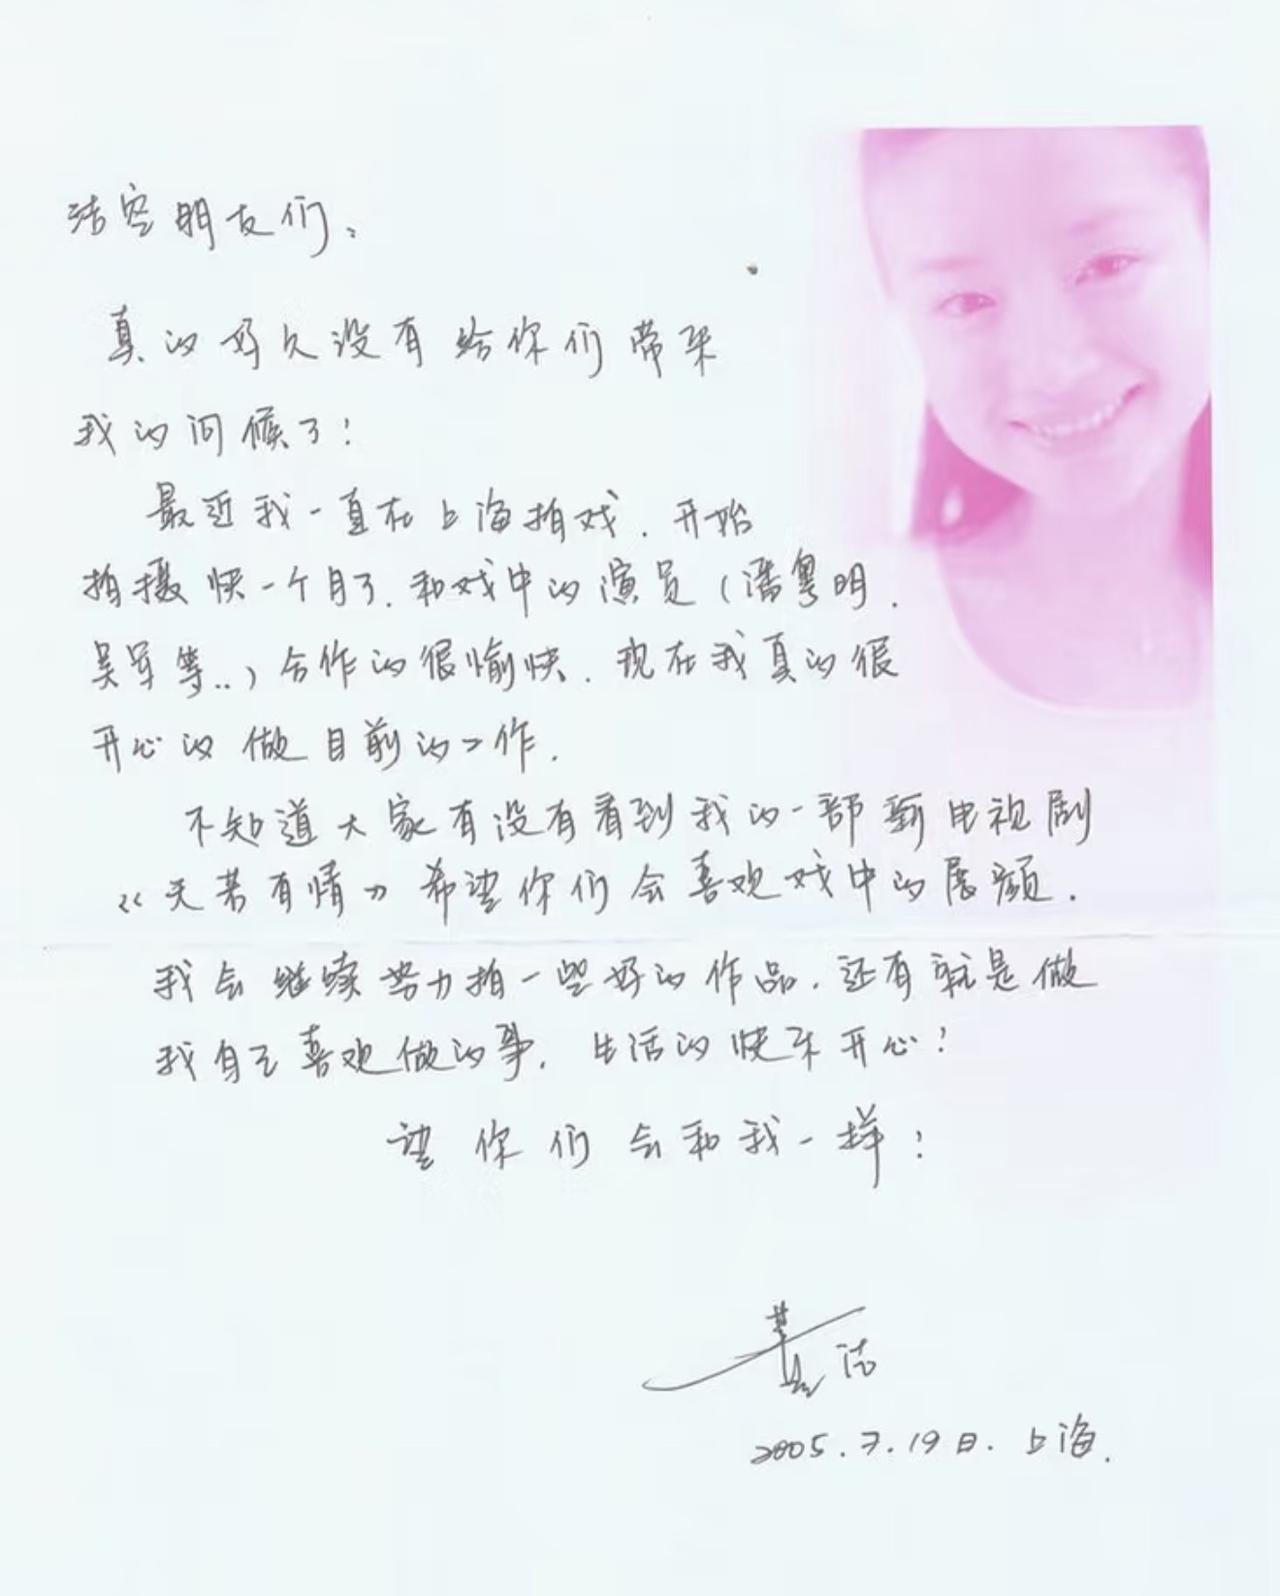 洁客朋友们：
真的好久没有给你们带来
我的问候了！
最近我一直在上海拍戏．开始
拍摄快一个月了．和戏中的演员（潘粤明．
吴军等..）合作的很愉快．现在我真的很
开心的做目前的工作．
不知道大家有没有看到我的一部新电视剧
《天若有情》希望你们会喜欢戏中的展颜．
我会继续努力拍一些好的作品．还有就是做
我自己喜欢做的事．生活的快乐开心！
望你们会和我一样！
洁
2005.7.19日．上海．